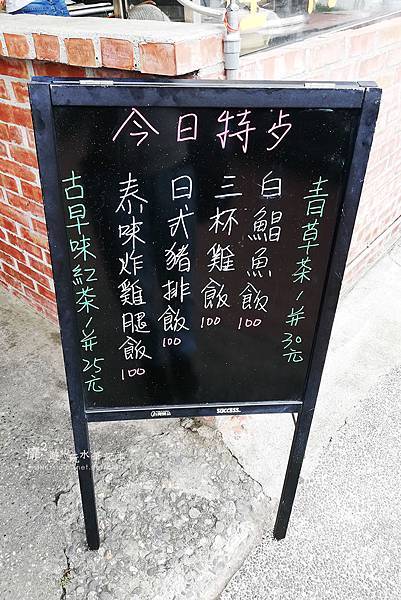 今日特步
青草茶/并30元
白鯧魚飯100
三杯雞飯100
日式豬排飯100
泰味炸雞腿飯100
古早味紅茶/并25元
SUCCESS